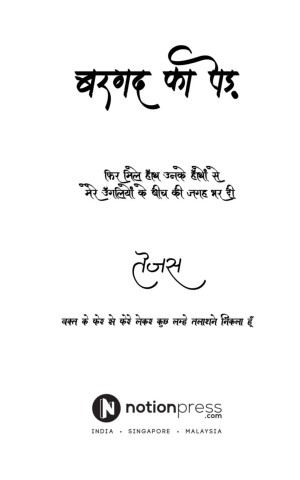 बरगद का पेड़
फिर मिले हाथ उनके हाथों से
मेरे उँगलियों के बीच की जगह भर दी
तेजस
वक्त के फेर से फेरे लेकर कुछ लम्हे तलाशने निकला हूँ
N notionpress
.com
INDIA • SINGAPORE • MALAYSIA